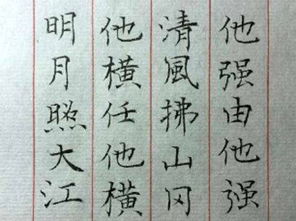 他强由他强
清風拂山冈
他横任他横
明月照大江